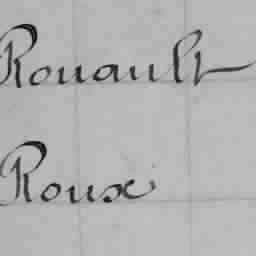 Rouault
Roux